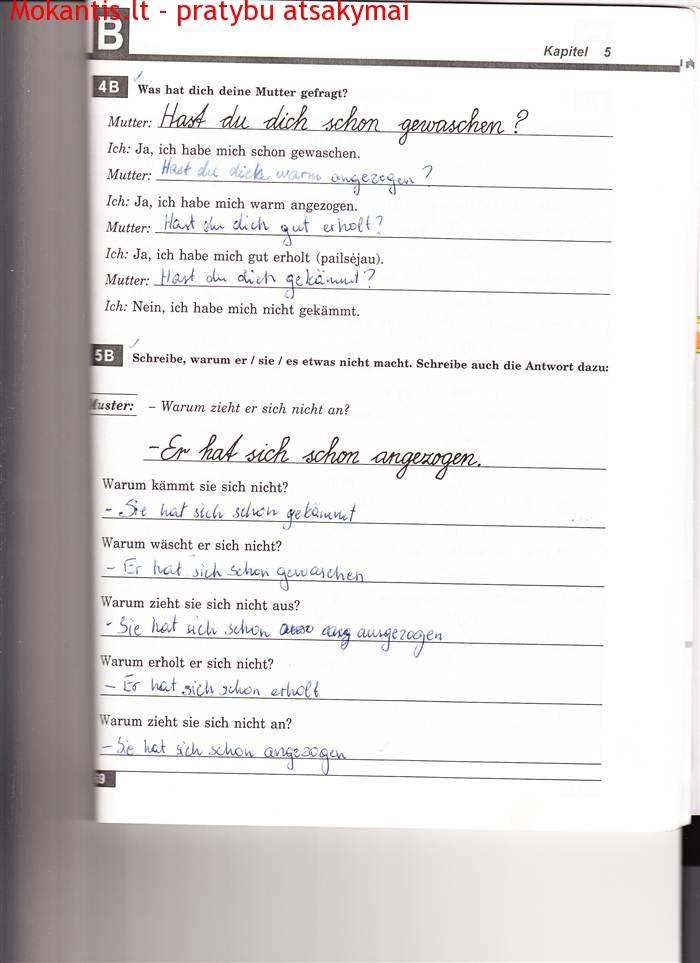 Mokantis.lt - pratybu atsakymai
B
Kapitel 5
4B Was hat dich deine Mutter gefragt?
Mutter: Hast du dich schon gewaschen?
Ich: Ja, ich habe mich schon gewaschen.
Mutter: Hast du dich warm angezogen?
Ich: Ja, ich habe mich warm angezogen.
Mutter: Hast du dich gut erholt?
Ich: Ja, ich habe mich gut erholt (pailsėjau).
Mutter: Hast du dich gekämmt?
Ich: Nein, ich habe mich nicht gekämmt.
5B Schreibe, warum er / sie / es etwas nicht macht. Schreibe auch die Antwort dazu:
Muster: – Warum zieht er sich nicht an?
- Er hat sich schon angezogen.
Warum kämmt sie sich nicht?
- Sie hat sich schon gekämmt
Warum wäscht er sich nicht?
- Er hat sich schon gewaschen
Warum zieht sie sich nicht aus?
- Sie hat sich schon ausgezogen
Warum erholt er sich nicht?
- Er hat sich schon erholt
Warum zieht sie sich nicht an?
- Sie hat sich schon angezogen